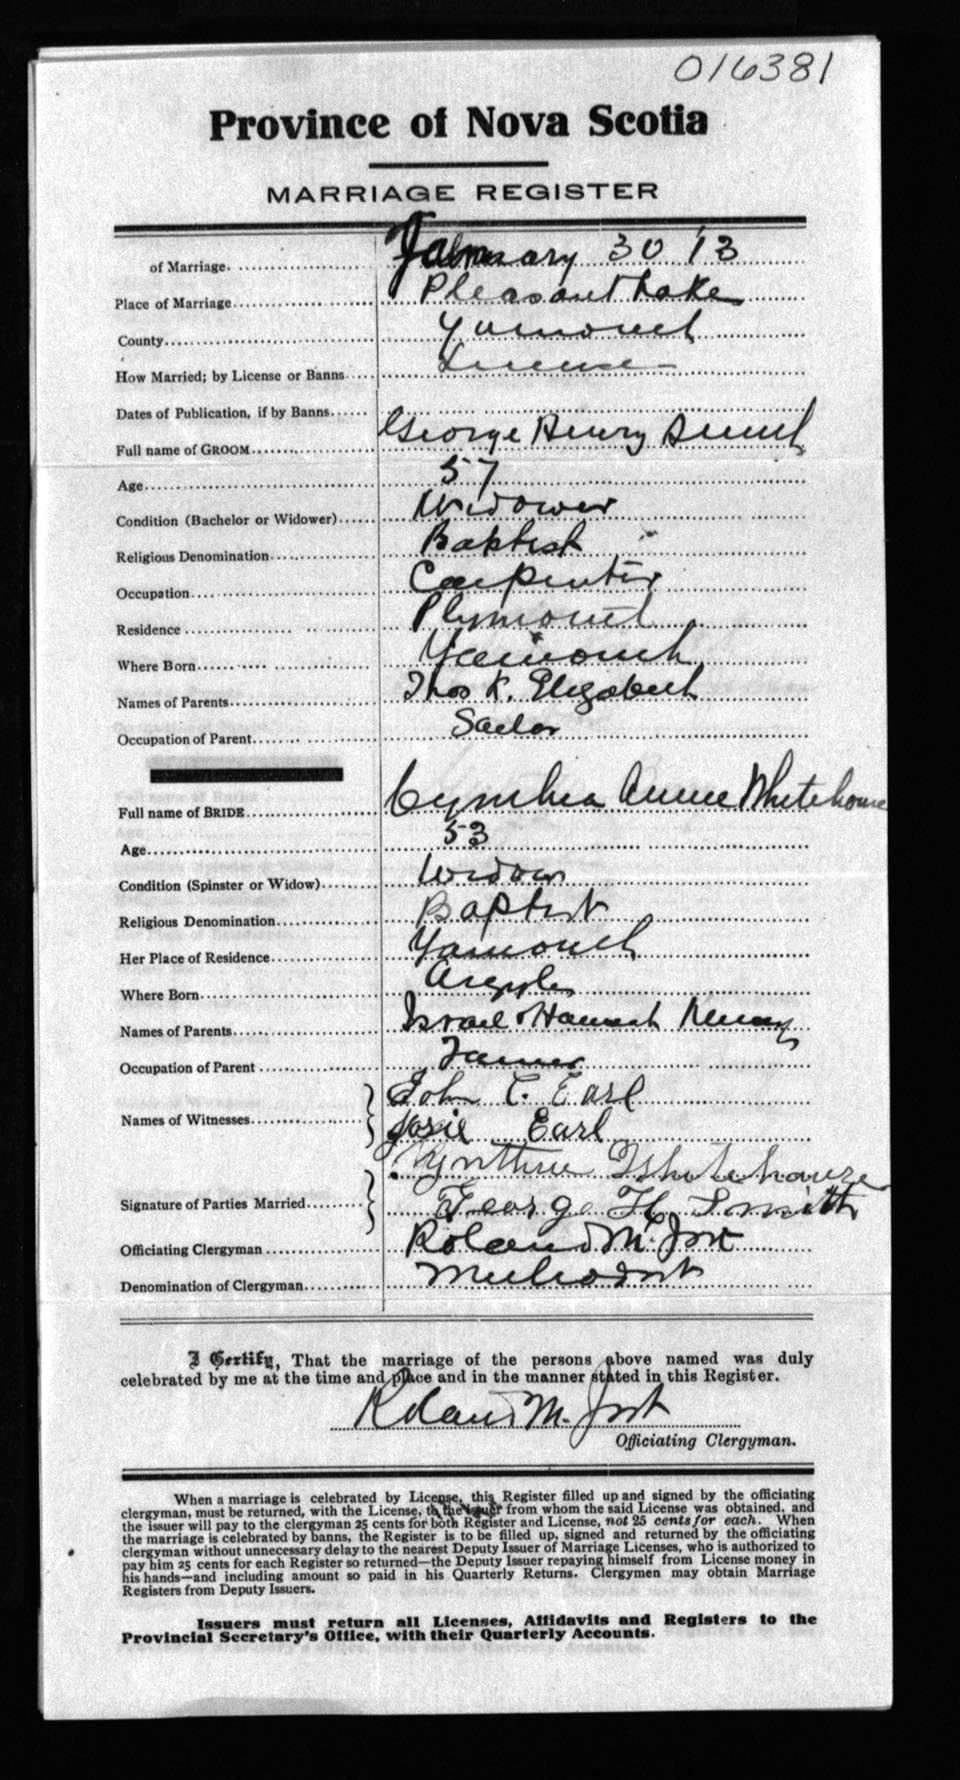 016381
Province of Nova Scotia
MARRIAGE REGISTER
of Marriage. January 30 '13
Place of Marriage Pleasant Lake
County Yarmouth
How Married; by License or Banns License
Dates of Publication, if by Banns
Full name of GROOM George Henry Smith
Age 57
Condition (Bachelor or Widower) Widower
Religious Denomination Baptist
Occupation Carpenter
Residence Plymouth
Where Born Yarmouth
Names of Parents Thos K. Elizabeth
Occupation of Parent Sailor
Full name of BRIDE Cynthia Annie Whitehouse
Age 53
Condition (Spinster or Widow) Widow
Religious Denomination Baptist
Her Place of Residence Yarmouth
Where Born Argyle
Names of Parents Israel & Hannah
Occupation of Parent
Names of Witnesses John C. Earl
Josie Earl
Whitehouse
Signature of Parties Married George H. Smith
Officiating Clergyman Roland M. Jost
Denomination of Clergyman Methodist
I Certify, That the marriage of the persons above named was duly
celebrated by me at the time and place and in the manner stated in this Register.
Roland M. Jost
Officiating Clergyman.
When a marriage is celebrated by License, this Register filled up and signed by the officiating
clergyman, must be returned, with the License, to the issuer from whom the said License was obtained, and
the issuer will pay to the clergyman 25 cents for both Register and License, not 25 cents for each. When
the marriage is celebrated by banns, the Register is to be filled up, signed and returned by the officiating
clergyman without unnecessary delay to the nearest Deputy Issuer of Marriage Licenses, who is authorized to
pay him 25 cents for each Register so returned—the Deputy Issuer repaying himself from License money in
his hands—and including amount so paid in his Quarterly Returns. Clergymen may obtain Marriage
Registers from Deputy Issuers.
Issuers must return all Licenses, Affidavits and Registers to the
Provincial Secretary's Office, with their Quarterly Accounts.